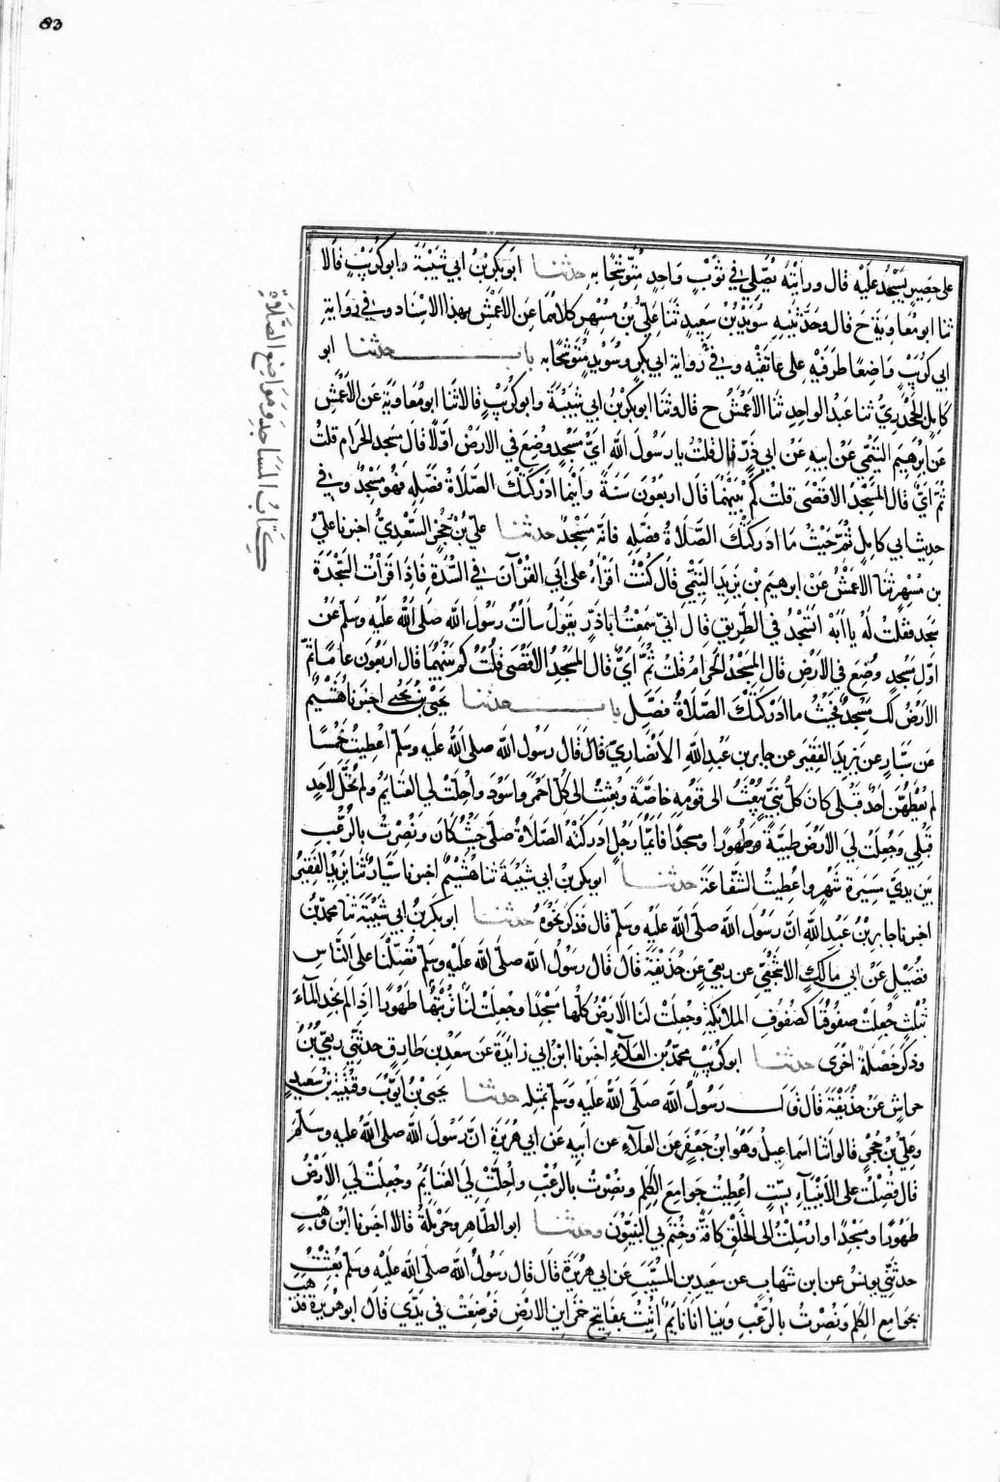 83
على حصيرٍ يَسْجُدُ عَلَيْه قال ورأيتُهُ يُصَلِّي في ثَوْبٍ وَاحِدٍ مُتَوَشِّحًا بِهِ حدثنا ابَوُبَكرِ بْنُ ابي شَيْبَةَ وابو كُرَيْبٍ قَالا
ثنا ابو مُعَاوِيَةَ حَ قال وحَدَّثَنِيهِ سُوَيْدُ بْنُ سَعِيدٍ ثَنَا عَلِيُّ بنُ مُسْهِرٍ كِلاهُمَا عَنِ الأعْمَشِ بهذا الاسْنادِ و في رِوَايَةِ
ابي كُرَيْبٍ وَاضِعًا طرفَيْهِ على عَاتِقَيْهِ وَ في رِوَايَةِ ابي بكرٍ وسُوَيْدٍ مُتَوَشِّحًا بِهِ باب حدثنا ابو
كَامِلٍ الجَحْدَرِيُّ ثنا عَبْدُ الواحِدِ ثَنَا الأعْمَشُ ح قال وثنا ابوبكْرِ بْنُ ابي شَيْبَةَ وابو كُرَيْبٍ قالا ثَنا ابو مُعَاوِيَةَ عَنِ الأعْمَشِ
عَنْ ابْرٰهِيمَ التَّيْمِيِّ عَنْ ابيهِ عَنْ ابي ذَرٍّ قَالَ قُلْتُ يا رَسُولَ اللّٰهِ ايُّ مَسْجِدٍ وُضِعَ في الارْضِ اَوَّلا قَالَ المسجد الحرام قلتُ
ثُمَّ ايٌّ قال المَسْجِدُ الاقْصَى قلتُ كَمْ بَيْنَهُمَا قَالَ اربعُونَ سَنَةً وَاَيْنَمَا ادْرَكَتْكَ الصَّلَاةُ فصَلِّهِ فَهُوَ مَسْجِدٌ و في
حديث ابي كاملٍ ثُمَّ حَيْثُ مَا ادركَتْكَ الصَّلاةُ فصَلِّهِ فانّه مَسْجِدٌ حدثنا عليُّ بْنُ حُجْرٍ السَّعْدِيُّ اخبرنا عَلِيُّ
بن مُسْهِرٍ ثَنا الاعْمَشُ عَنْ ابرهيمَ بنِ يَزِيدَ التَّيْمِيِّ قال كُنْتُ اقْرَأُ على ابي القُرْآنَ في السُّدَّةِ فاذا قَرَأْتُ السَّجْدَةَ
سَجد فقُلتُ لَهُ يا أبَهْ اتَسْجُدُ في الطَّرِيقِ قالَ انّي سَمِعْتُ ابا ذَرٍّ يقولُ سألتُ رَسُولَ اللّٰه صلى اللّٰهُ عَلَيْهِ وسَلَّمَ عَنْ
اوّلِ مَسْجِدٍ وُضِعَ في الأرْضِ قال المَسْجِدُ الحَرَامُ قلت ثُمَّ ايٌّ قال المَسْجِدُ الأقْصَى قلتُ كَمْ بَيْنَهُمَا قال اربعونَ عامًا ثمَّ
الأرْضُ لَكَ مَسْجِدٌ فحيْثُ ما ادْركَتْكَ الصَّلَاةُ فصَلِّ باب حدثنا يَحْيَى بْنُ يَحْيَى اخبرنا هُشَيْمٌ
عَنْ سَيَّارٍ عن يَزِيدَ الفَقِيرِ عن جابرِ بن عَبْدِ اللّٰهِ الانْصَارِيِّ قالَ قَالَ رَسُولُ اللّٰهِ صلى اللّٰهُ عَلَيهِ وسَلَّمَ اُعْطِيتُ خَمْسًا
لم يُعْطَهُنَّ اَحَدٌ قَبْلي كانَ كلُّ نَبِيٍّ يُبْعَثُ الى قَوْمِهِ خَاصَّةً وبُعِثْتُ الى كُلِّ احْمَرَ وَاسْودَ واُحِلَّتْ ليَ الغَنَايمُ ولم تُحَلَّ لاحَدٍ
قَبْلِي وَجُعِلَتْ ليَ الأرْضُ طَيِّبَةً وطَهُورًا ومسجدًا فايُّما رَجُلٍ ادركَتْهُ الصّلاةُ صلّى حَيْثُ كَان ونُصِرْتُ بالرُّعْبِ
بَيْنَ يَدَيْ مَسِيرَةِ شَهْرٍ واُعْطِيتُ الشَّفَاعَةَ حدثنا ابوبكرِ بن ابي شَيْبَةَ ثنا هُشَيْمٌ اخبرنا سَيَّارٌ ثنا يَزِيدُ الفَقِيرُ
اخبرنا جابرُ بْنُ عَبْدِ اللّٰهِ اَنَّ رَسُولَ اللّٰهِ صلّى اللّٰهُ عَلَيْهِ وسَلَّمَ قال فذكَرَ نَحْوَهُ حدثنا ابو بَكرِ بْنُ ابي شَيْبَةَ ثنا محمّدُ بْنُ
فُضَيْلٍ عَنْ ابي مالِكٍ الاشْجَعِيِّ عن رِبْعِيٍّ عَنْ حُذَيْفَةَ قالَ قَال رَسُولُ اللّٰهِ صلّى اللّٰهُ عَلَيْهِ وسَلَّمَ فُضِّلْنَا على النَّاسِ
بثَلٰثٍ جُعِلَتْ صفوفُنَا كصُفُوفِ الملائكةِ وجُعِلَتْ لنا الارْضُ كلُّها مَسْجِدًا وجُعِلَتْ لنا تُرْبَتُها طَهُورًا اذا لم نجد المآءَ
وذكر خَصْلَةً اُخْرَى حدثنا ابو كُرَيْبٍ محمّدُ بن العَلاَءِ اخبرنا ابنُ ابي زايِدَةَ عَنْ سَعْدِ بن طَارِقٍ حدثَنِي رِبْعِيُّ بْنُ
حراشٍ عَنْ حُذَيْفَةَ قالَ قَال رَسُولُ اللّٰه صلَّى اللّٰهُ عَلَيْهِ وسَلَّمَ بمِثْلِهِ حدثنا يحيى بْنُ ايّوُبَ وقُتَيْبَةُ بْنُ سَعِيدٍ
وعَلِيُّ بْنُ حُجْرٍ قالوا ثنا اسمَاعِيلُ وَهُوَ ابْنُ جَعْفَرٍ عَنِ العَلاَءِ عن ابيهِ عَن ابي هُرَيرةَ انَّ رَسُولَ اللّٰهِ صلى اللّٰهُ عليهِ وسَلَّمَ
قال فُضِّلْتُ على الأنْبِيَآءِ بِسِتٍّ اُعْطِيتُ جَوَامِعَ الكَلِمِ ونُصِرْتُ بالرُّعْبِ واُحِلَّتْ ليَ الغَنَايمُ وجُعِلَتْ ليَ الاَرْضُ
طَهُورًا ومَسْجِدًا وارْسِلْتُ الى الخَلْقِ كافَّةً وخُتِمَ بيَ النَّبِيُّونَ وحدثنا ابو الطّاهِرِ وحَرْمَلَةُ قالا اخبرنا ابْنُ وَهْبٍ
حدثَنِي يونسُ عن ابن شِهَابٍ عن سَعِيدِ بنِ المُسَيَّبِ عن ابي هُرَيْرَةَ قالَ قال رَسُولُ اللّٰهِ صلى اللّٰهُ عَلَيْهِ وسَلَّمَ بُعِثْتُ
بجَوَامِعِ الكَلِمِ ونُصِرْتُ بالرُّعْبِ وبَيْنا انا نَايِمٌ اُتِيتُ بمفاتِيحِ خَزَائِنِ الارْضِ فَوُضِعَتْ في يَدَيَّ قَالَ ابو هُرَيْرَةَ فذَهَبَ
كِتَابُ المسَاجِدِ وَمَوَاضِعِ الصَّلَاةِ